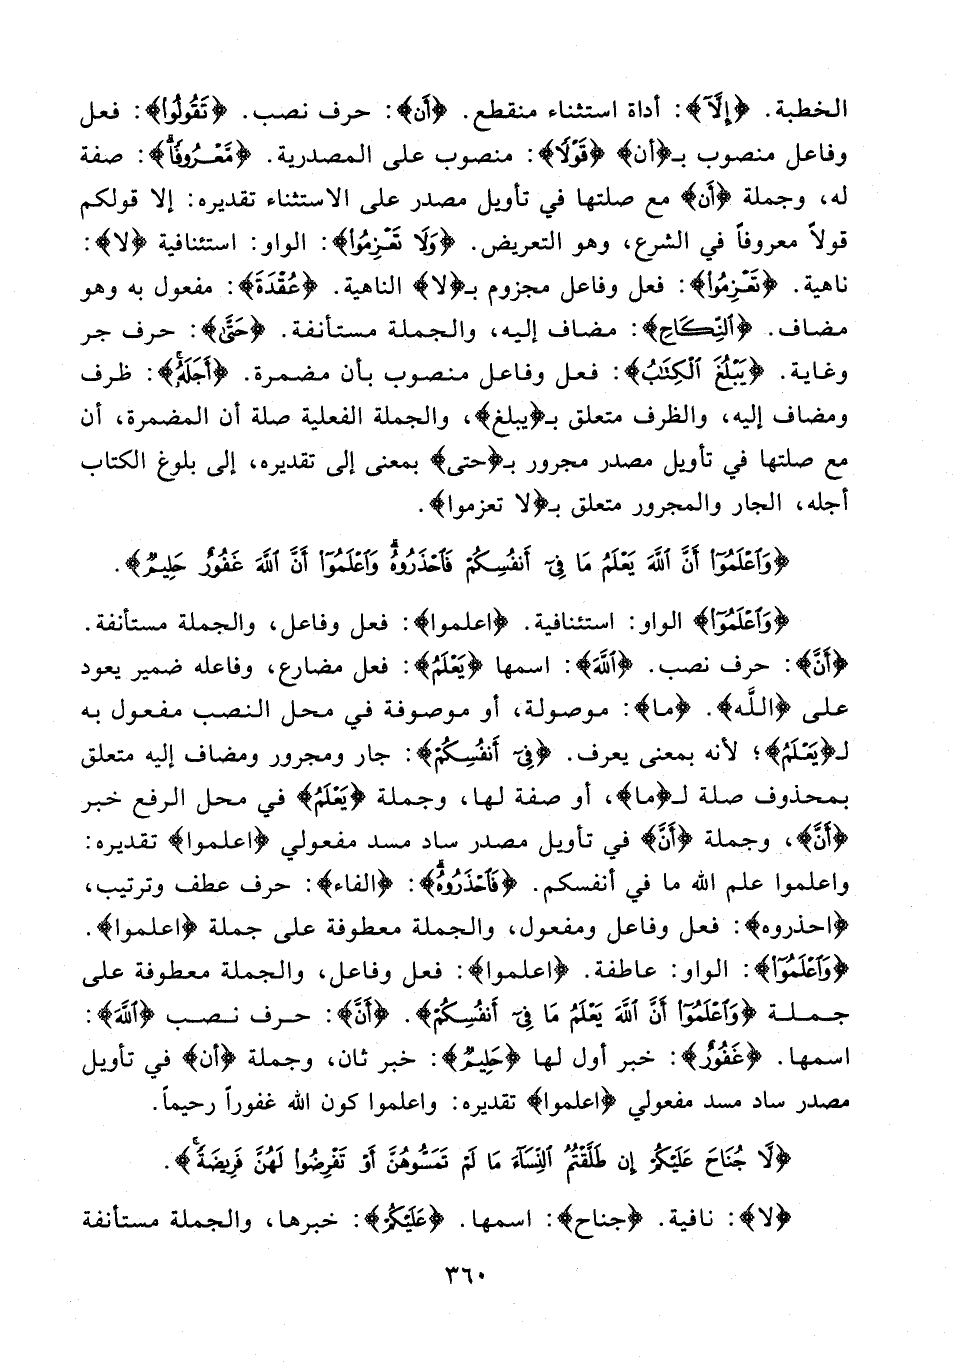 الخطبة. ﴿إِلَّآ﴾: أداة استثناء منقطع. ﴿أَن﴾: حرف نصب. ﴿تَقُولُوا۟﴾: فعل
وفاعل منصوب بـ﴿أن﴾ ﴿قَوْلًا﴾: منصوب على المصدرية. ﴿مَّعْرُوفًا ۚ﴾: صفة
له، وجملة ﴿أَن﴾ مع صلتها في تأويل مصدر على الاستثناء تقديره: إلا قولكم
قولاً معروفاً في الشرع، وهو التعريض. ﴿وَلَا تَعْزِمُوا۟﴾: الواو: استئنافية ﴿لا﴾:
ناهية. ﴿تَعْزِمُوا۟﴾: فعل وفاعل مجزوم بـ﴿لا﴾ الناهية. ﴿عُقْدَةَ﴾: مفعول به وهو
مضاف. ﴿ٱلنِّكَاحِ﴾: مضاف إليه، والجملة مستأنفة. ﴿حَتَّىٰ﴾: حرف جر
وغاية. ﴿يَبْلُغَ ٱلْكِتَٰبُ﴾: فعل وفاعل منصوب بأن مضمرة. ﴿أَجَلَهُۥ ۚ﴾: ظرف
ومضاف إليه، والظرف متعلق بـ﴿يبلغ﴾، والجملة الفعلية صلة أن المضمرة، أن
مع صلتها في تأويل مصدر مجرور بـ﴿حتى﴾ بمعنى إلى تقديره، إلى بلوغ الكتاب
أجله، الجار والمجرور متعلق بـ﴿لا تعزموا﴾.
﴿وَٱعْلَمُوٓا۟ أَنَّ ٱللَّهَ يَعْلَمُ مَا فِىٓ أَنفُسِكُمْ فَٱحْذَرُوهُ ۚ وَٱعْلَمُوٓا۟ أَنَّ ٱللَّهَ غَفُورٌ حَلِيمٌ﴾.
﴿وَٱعْلَمُوٓا۟﴾ الواو: استئنافية. ﴿اعلموا﴾: فعل وفاعل، والجملة مستأنفة.
﴿أَنَّ﴾: حرف نصب. ﴿ٱللَّهَ﴾: اسمها ﴿يَعْلَمُ﴾: فعل مضارع، وفاعله ضمير يعود
على ﴿اللَّه﴾. ﴿ما﴾: موصولة، أو موصوفة في محل النصب مفعول به
لـ﴿يَعْلَمُ﴾؛ لأنه بمعنى يعرف. ﴿فِىٓ أَنفُسِكُمْ﴾: جار ومجرور ومضاف إليه متعلق
بمحذوف صلة لـ﴿ما﴾، أو صفة لها، وجملة ﴿يَعْلَمُ﴾ في محل الرفع خبر
﴿أَنَّ﴾، وجملة ﴿أَنَّ﴾ في تأويل مصدر ساد مسد مفعولي ﴿اعلموا﴾ تقديره:
واعلموا علم الله ما في أنفسكم. ﴿فَٱحْذَرُوهُ ۚ﴾: ﴿الفاء﴾: حرف عطف وترتيب،
﴿احذروه﴾: فعل وفاعل ومفعول، والجملة معطوفة على جملة ﴿اعلموا﴾.
﴿وَٱعْلَمُوٓا۟﴾: الواو: عاطفة. ﴿اعلموا﴾: فعل وفاعل، والجملة معطوفة على
جملة ﴿وَٱعْلَمُوٓا۟ أَنَّ ٱللَّهَ يَعْلَمُ مَا فِىٓ أَنفُسِكُمْ﴾. ﴿أَنَّ﴾: حرف نصب ﴿ٱللَّهَ﴾:
اسمها. ﴿غَفُورٌ﴾: خبر أول لها ﴿حَلِيمٌ﴾: خبر ثان، وجملة ﴿أن﴾ في تأويل
مصدر ساد مسد مفعولي ﴿اعلموا﴾ تقديره: واعلموا كون الله غفوراً رحيماً.
﴿لَّا جُنَاحَ عَلَيْكُمْ إِن طَلَّقْتُمُ ٱلنِّسَآءَ مَا لَمْ تَمَسُّوهُنَّ أَوْ تَفْرِضُوا۟ لَهُنَّ فَرِيضَةً ۚ﴾.
﴿لا﴾: نافية. ﴿جناح﴾: اسمها. ﴿عَلَيْكُمْ﴾: خبرها، والجملة مستأنفة
٣٦٠